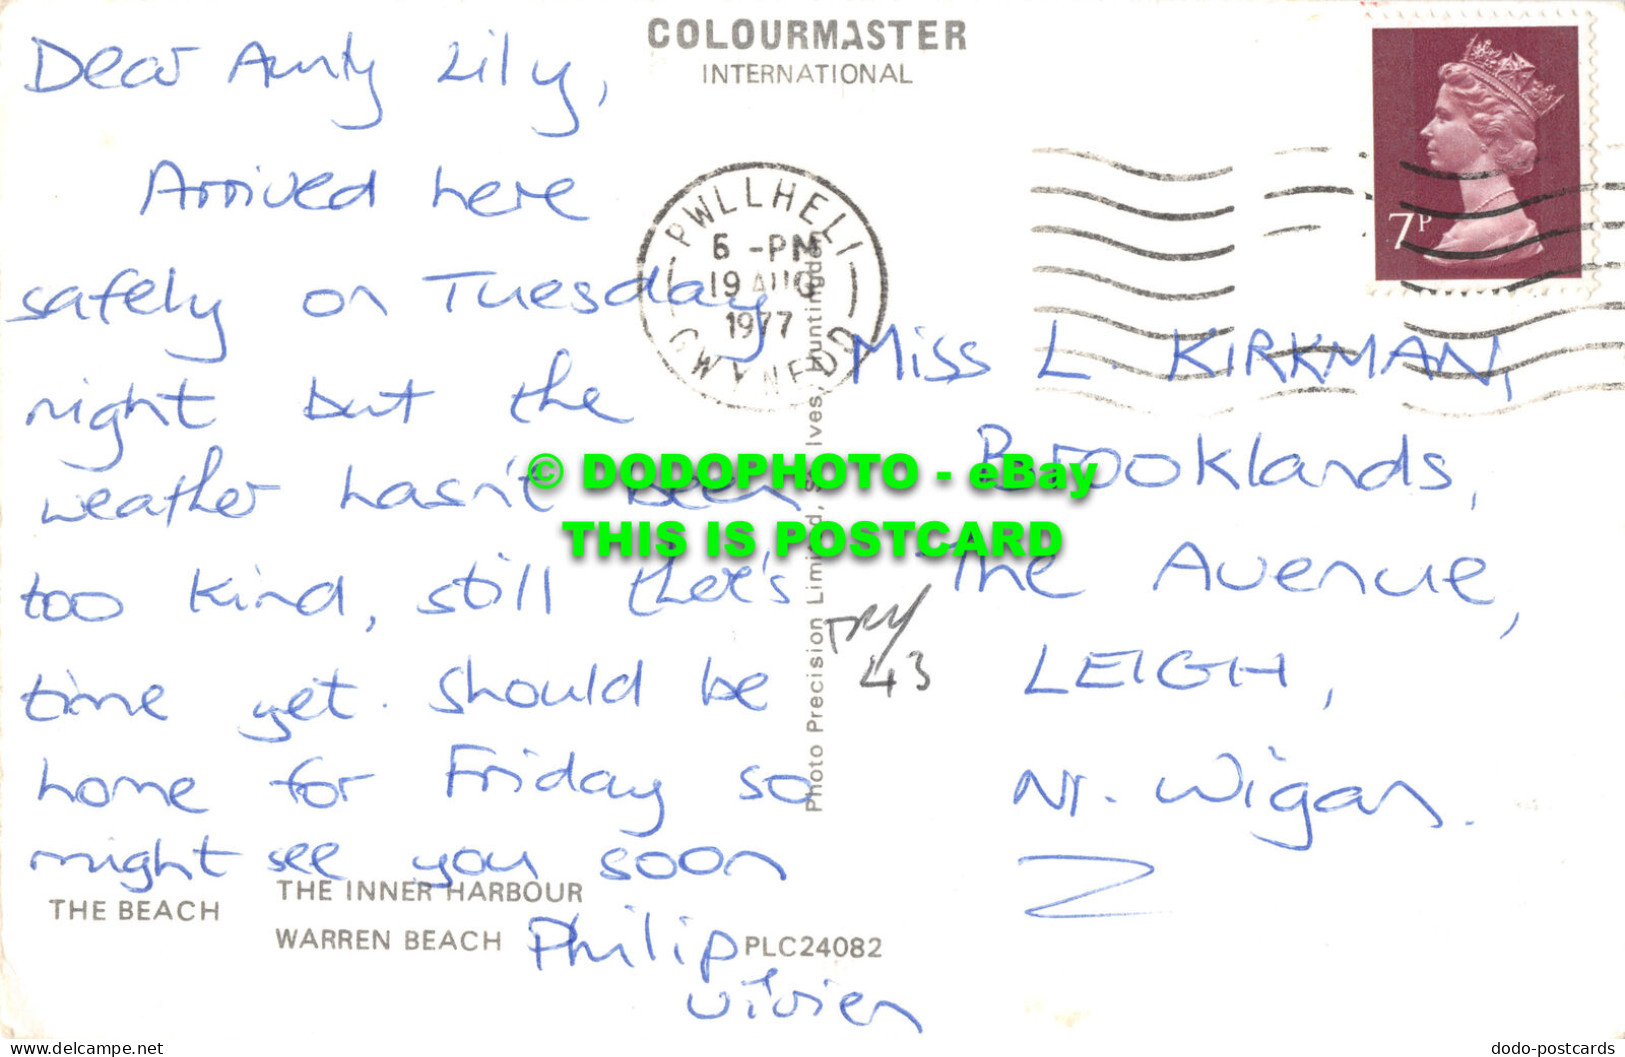 COLOURMASTER
INTERNATIONAL
Dear Aunty Lily,
Arrived here
safely on Tuesday
night but the
weather hasn't been
too kind, still there's
time yet. Should be
home for Friday so
might see you soon
Philip
Vivien
PWLLHELI
6 -PM
19 AUG
1977
GWYNEDD
7P
Miss L. KIRKMAN,
Brooklands,
The Avenue,
LEIGH,
Nr. Wigan.
TRY
43
Photo Precision Limited, St. Ives, Huntingdon
© DODOPHOTO - eBay
THIS IS POSTCARD
THE BEACH
THE INNER HARBOUR
WARREN BEACH
PLC24082
www.delcampe.net
dodo-postcards